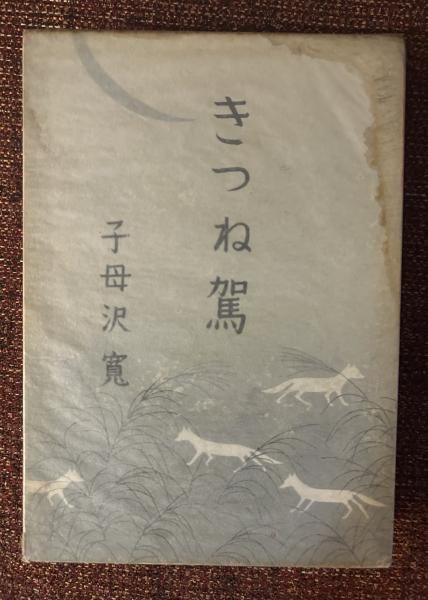 きつね駕
子母沢 寛